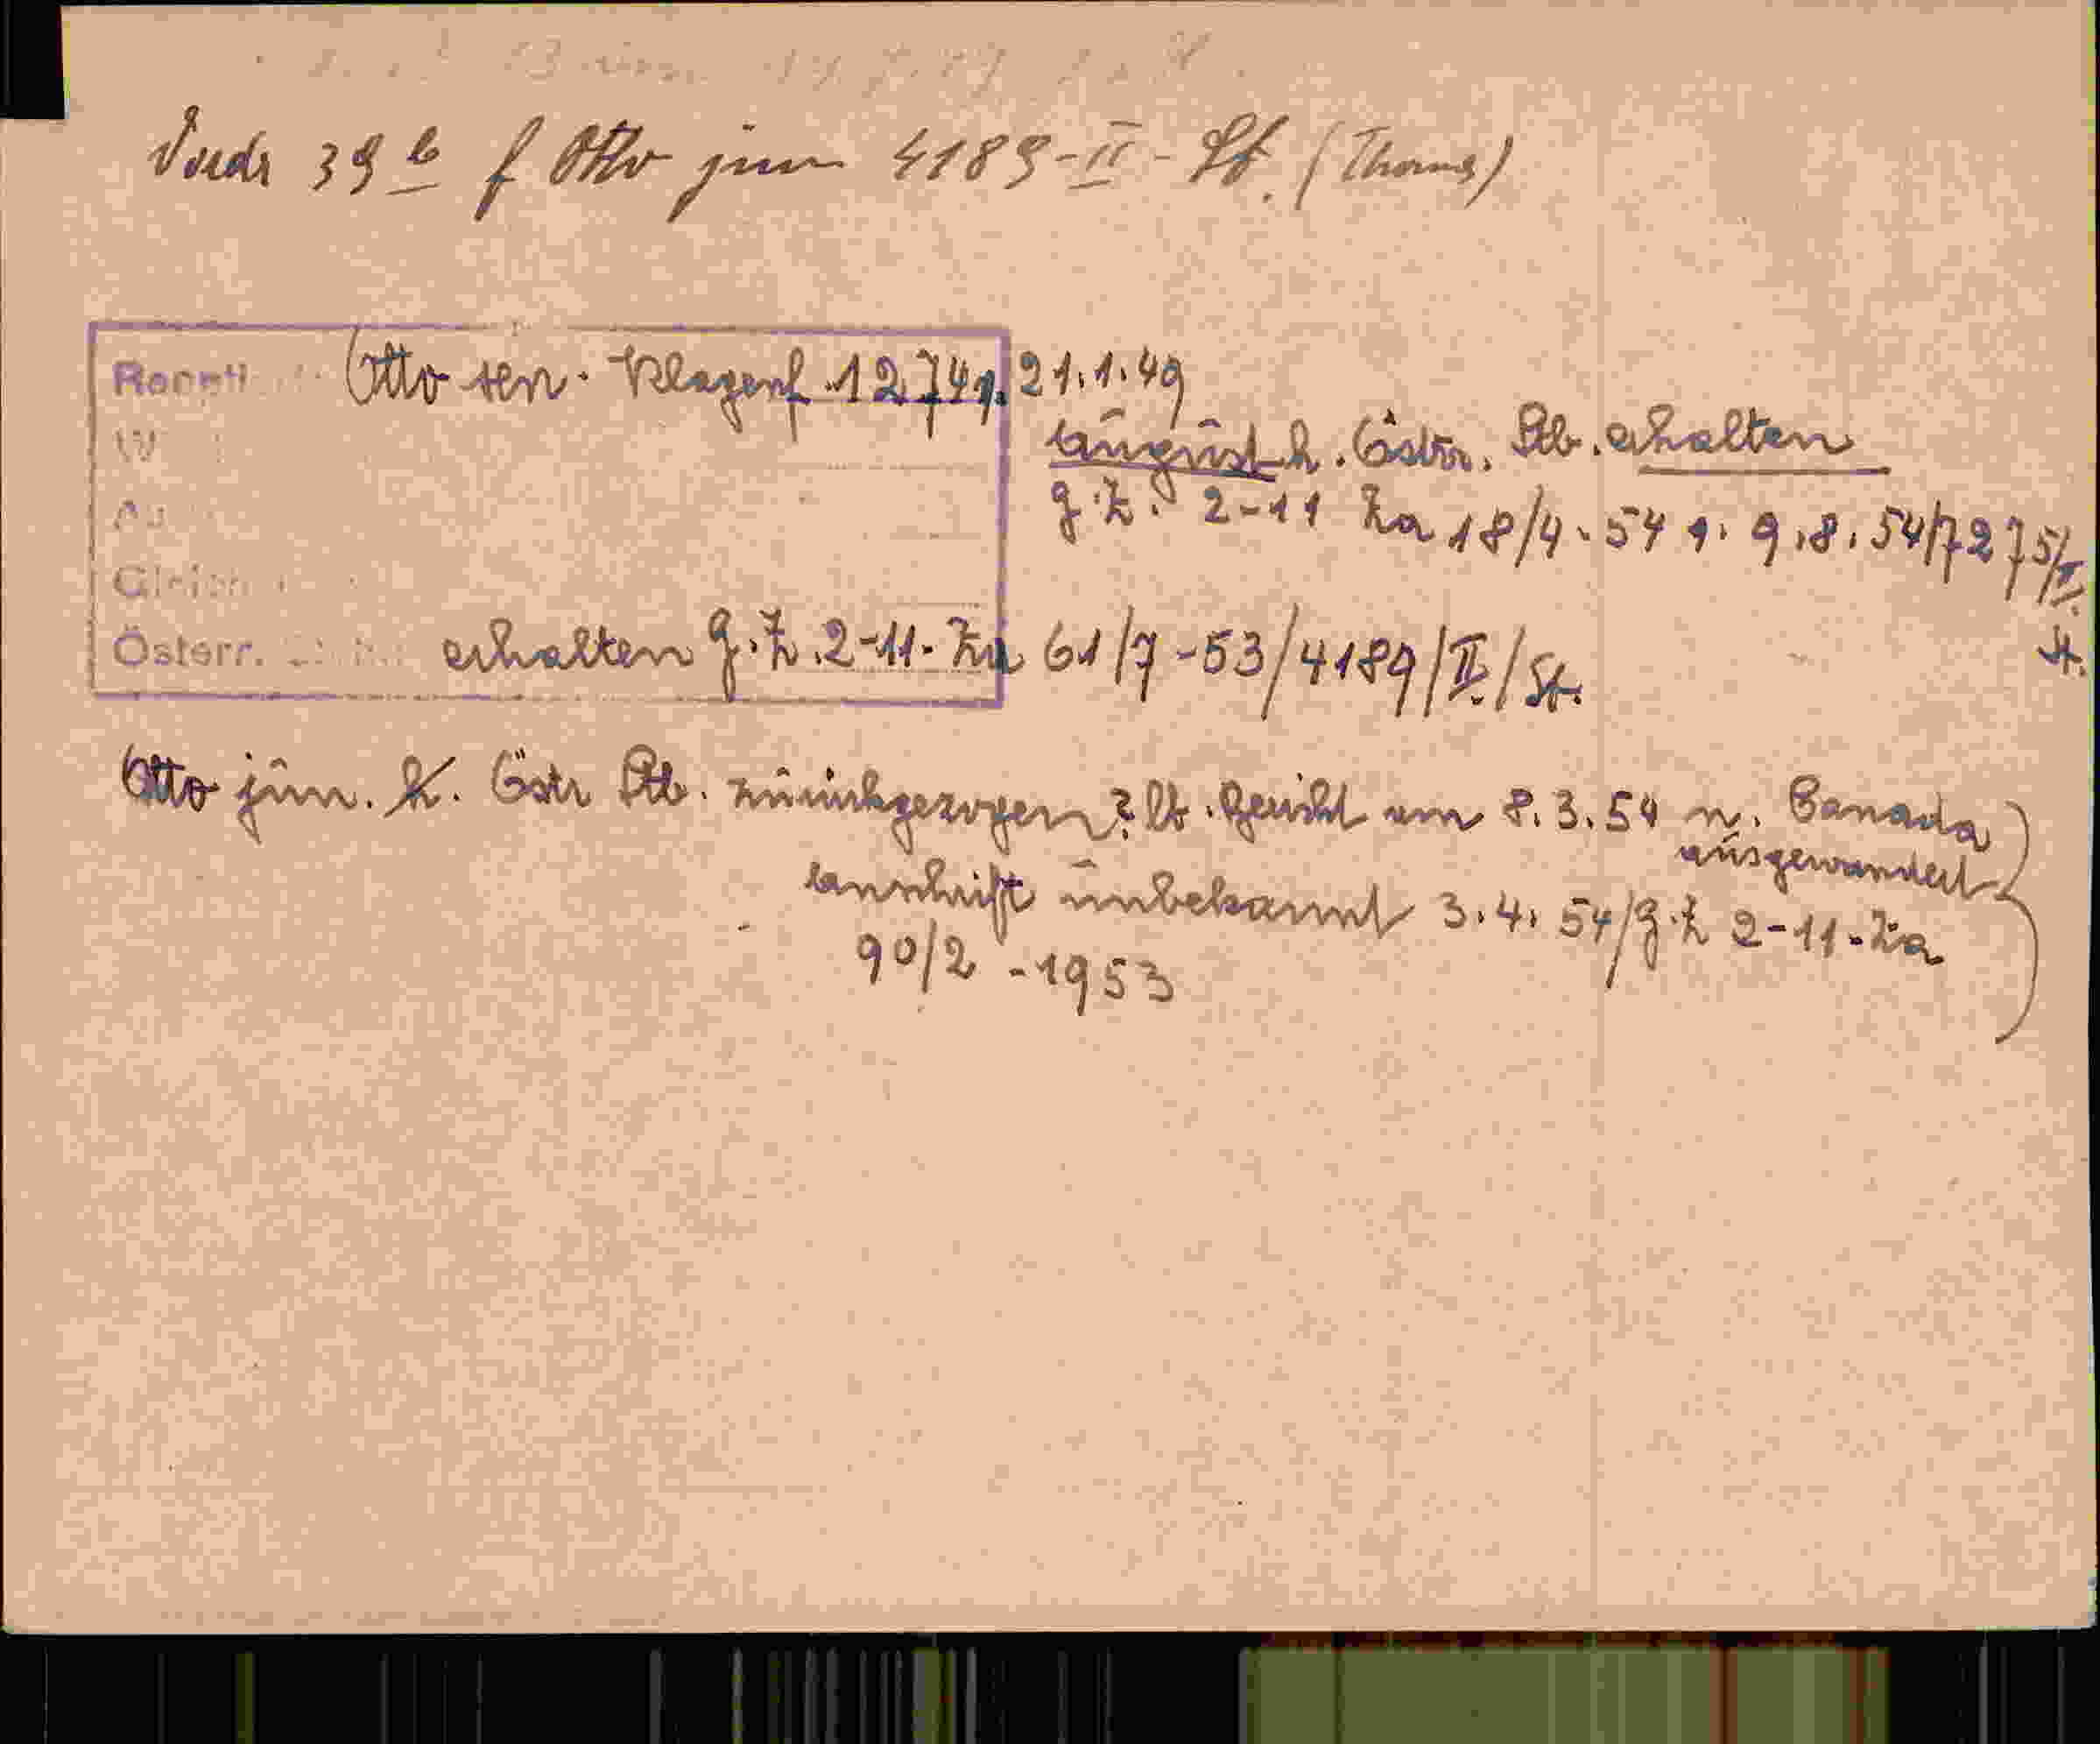 39 b f Otto jun 4189-II-St. (Thomas)
Otto sen. Klagenf. 1274 v. 21.1.49
August h. Östr. Stb. erhalten
g.Z. 2-11 Za 18/4.54 v. 9.8.54/7275/II.
St.
Österr. erhalten g.Z. 2-11-Za 61/7-53/4189/II./St.
Otto jun. h. Östr Stb. zurückgezogen? lt. Gericht am 8.3.54 n. Canada
ausgewandert
Anschrift unbekannt 3.4.54/g.Z 2-11-Za
90/2-1953